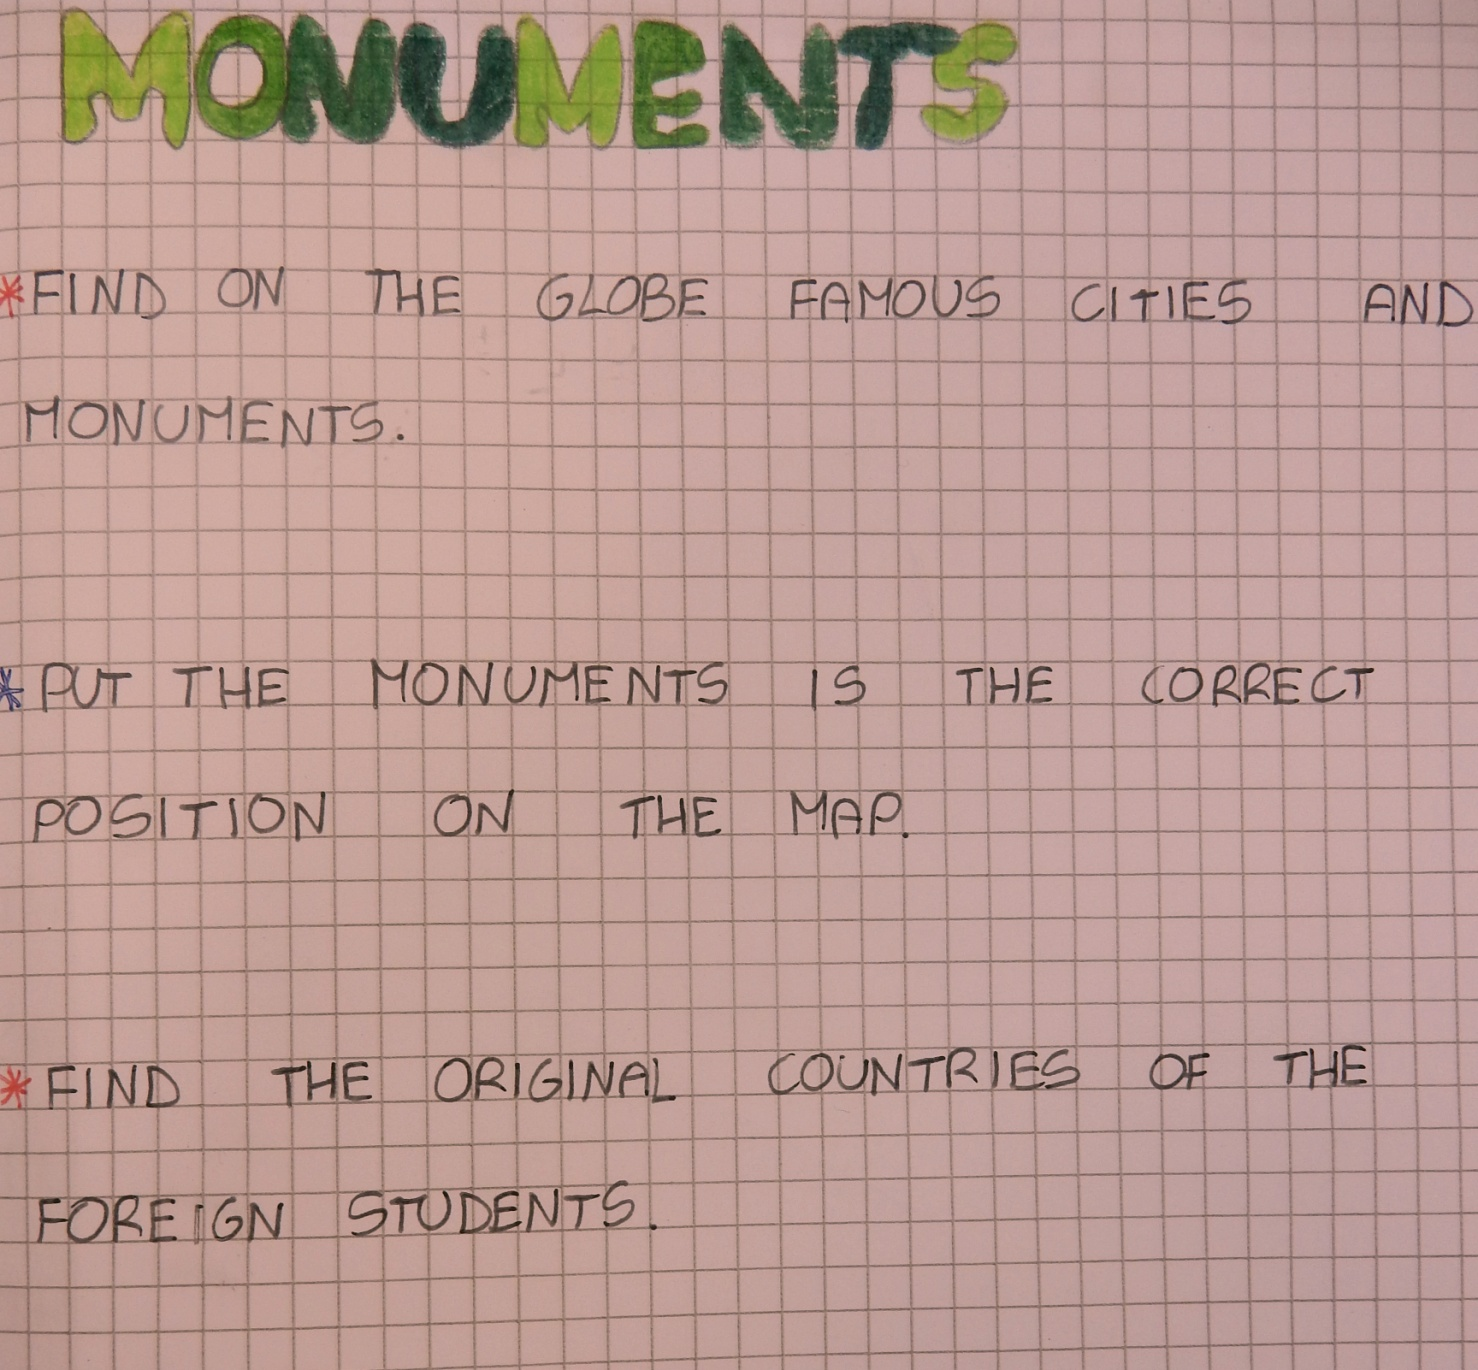 MONUMENTS
*FIND ON THE GLOBE FAMOUS CITIES AND
MONUMENTS.
*PUT THE MONUMENTS IS THE CORRECT
POSITION ON THE MAP.
*FIND THE ORIGINAL COUNTRIES OF THE
FOREIGN STUDENTS.